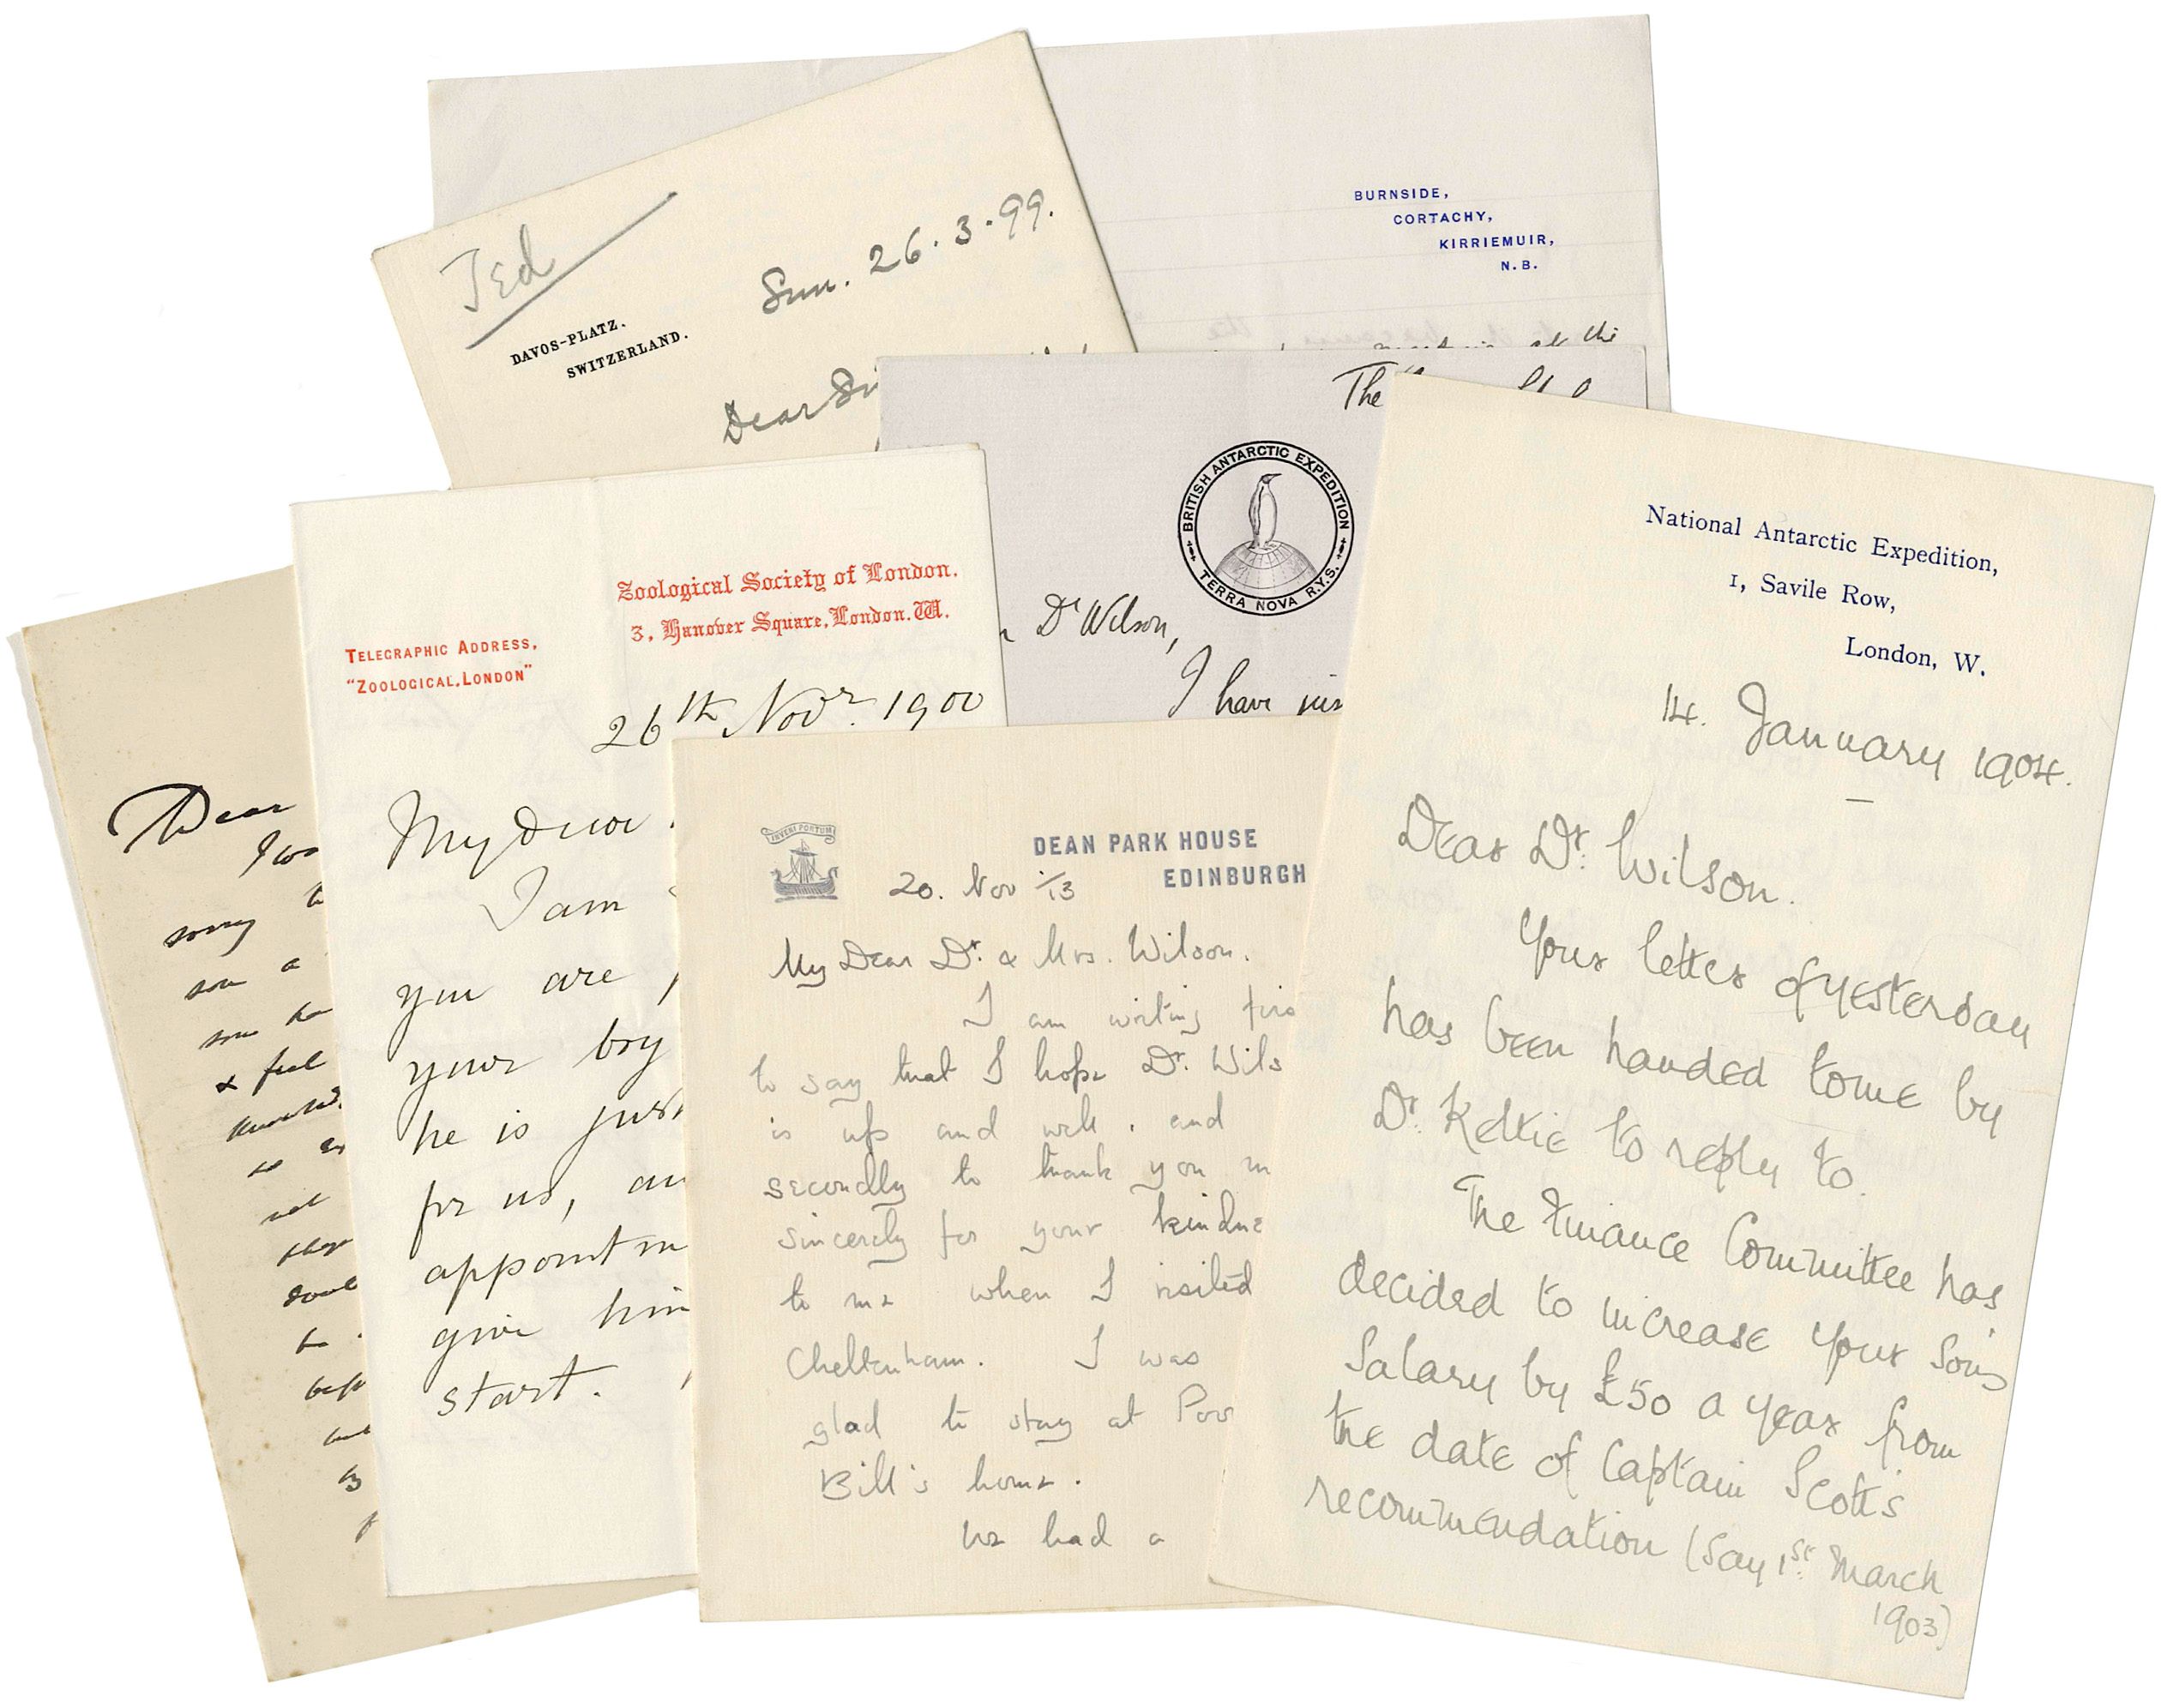 BURNSIDE,
CORTACHY,
KIRRIEMUIR,
N.B.
at the
Ted
Sun. 26.3.99.
DAVOS-PLATZ.
SWITZERLAND.
Dear
The
BRITISH ANTARCTIC EXPEDITION
TERRA NOVA R.Y.S.
Dr Wilson,
I have
Zoological Society of London.
3, Hanover Square, London. W.
TELEGRAPHIC ADDRESS,
"ZOOLOGICAL, LONDON"
26th Novr. 1900
My dear
I am
you are
your boy
he is just
for us, an
appointm
give him
start.
Dear
I wa
sorry
son a
son ha
& feel
not
to
INVENI PORTUM
DEAN PARK HOUSE
EDINBURGH
20. Nov /13
My Dear Dr. & Mrs. Wilson.
I am writing firs
to say that I hope Dr. Wils
is up and well, and
secondly to thank you m
sincerely for your kindne
to me when I visited
Cheltenham. I was
glad to stay at Poor
Bill's home.
We had a
National Antarctic Expedition,
1, Savile Row,
London, W.
14. January 1904.
Dear Dr. Wilson.
Your letter of yesterday
has been handed to me by
Dr. Keltie to reply to.
The Finance Committee has
decided to increase your son's
Salary by £50 a year from
the date of Captain Scott's
recommendation (Say 1st. March
1903)